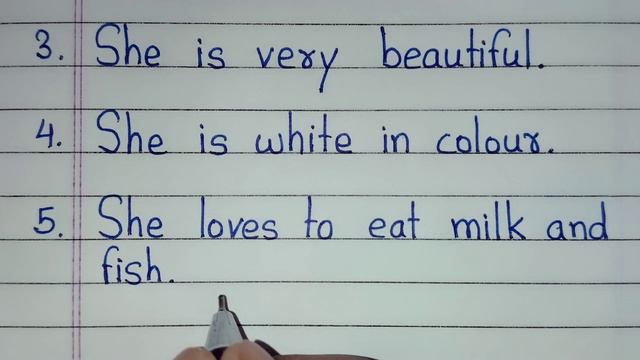 3. She is very beautiful.
4. She is white in colour.
5. She loves to eat milk and
fish.